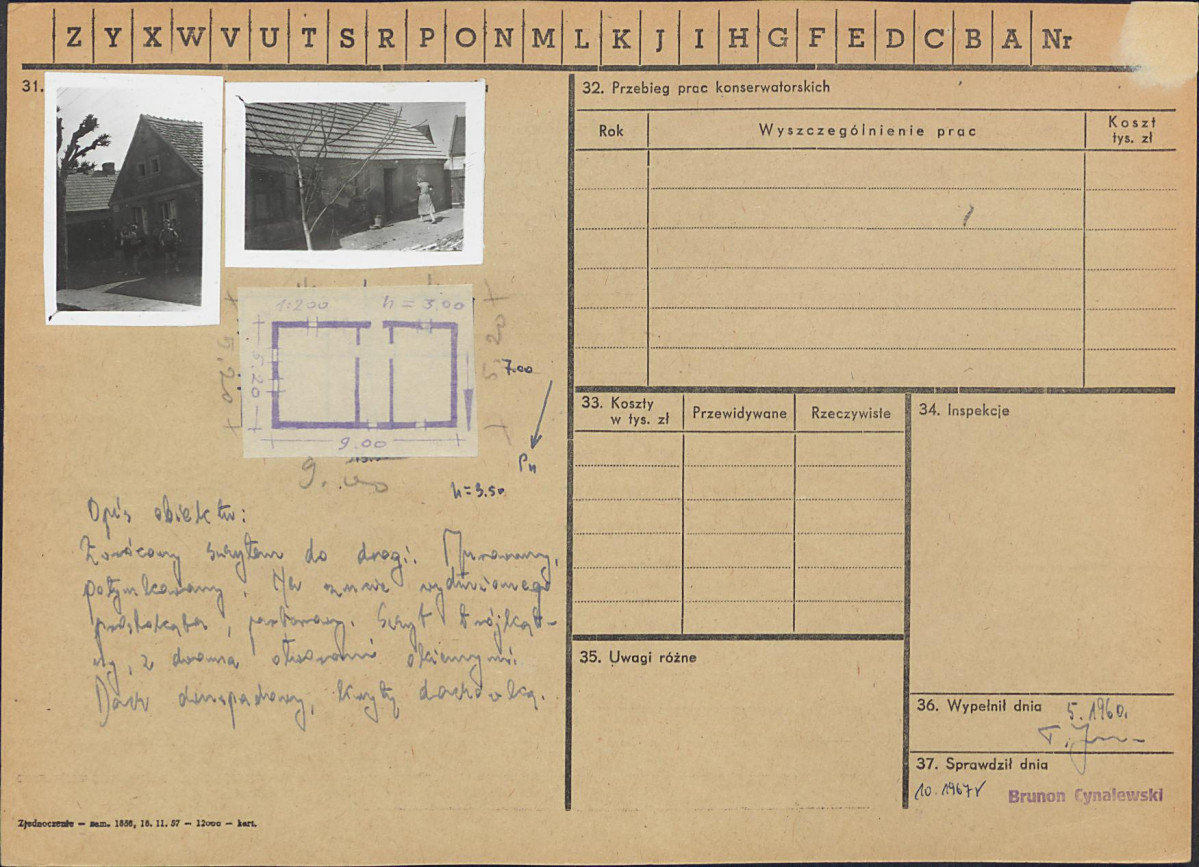 Z Y X W V U T S R P O N M L K J I H G F E D C B A Nr
31.
1:200 h = 3.00
5.20
5.20
9.00
9.00
7.00
Pn
h=3.50
Opis obiektu:
Zwrócony szczytem do drogi. Murowany,
potynkowany. Na rzucie wydłużonego
prostokąta, parterowy. Szczyt trójkąt-
ny, z dwoma otworami okiennymi.
Dach dwuspadowy, kryty dachówką.
Zjednoczenie — zam. 1886, 16. 11. 57 — 12000 — kart.
32. Przebieg prac konserwatorskich
Rok Wyszczególnienie prac Koszt tys. zł
33. Koszty w tys. zł Przewidywane Rzeczywiste
34. Inspekcje
35. Uwagi różne
36. Wypełnił dnia 5.1960.
37. Sprawdził dnia
10.1967r Brunon Cynalewski